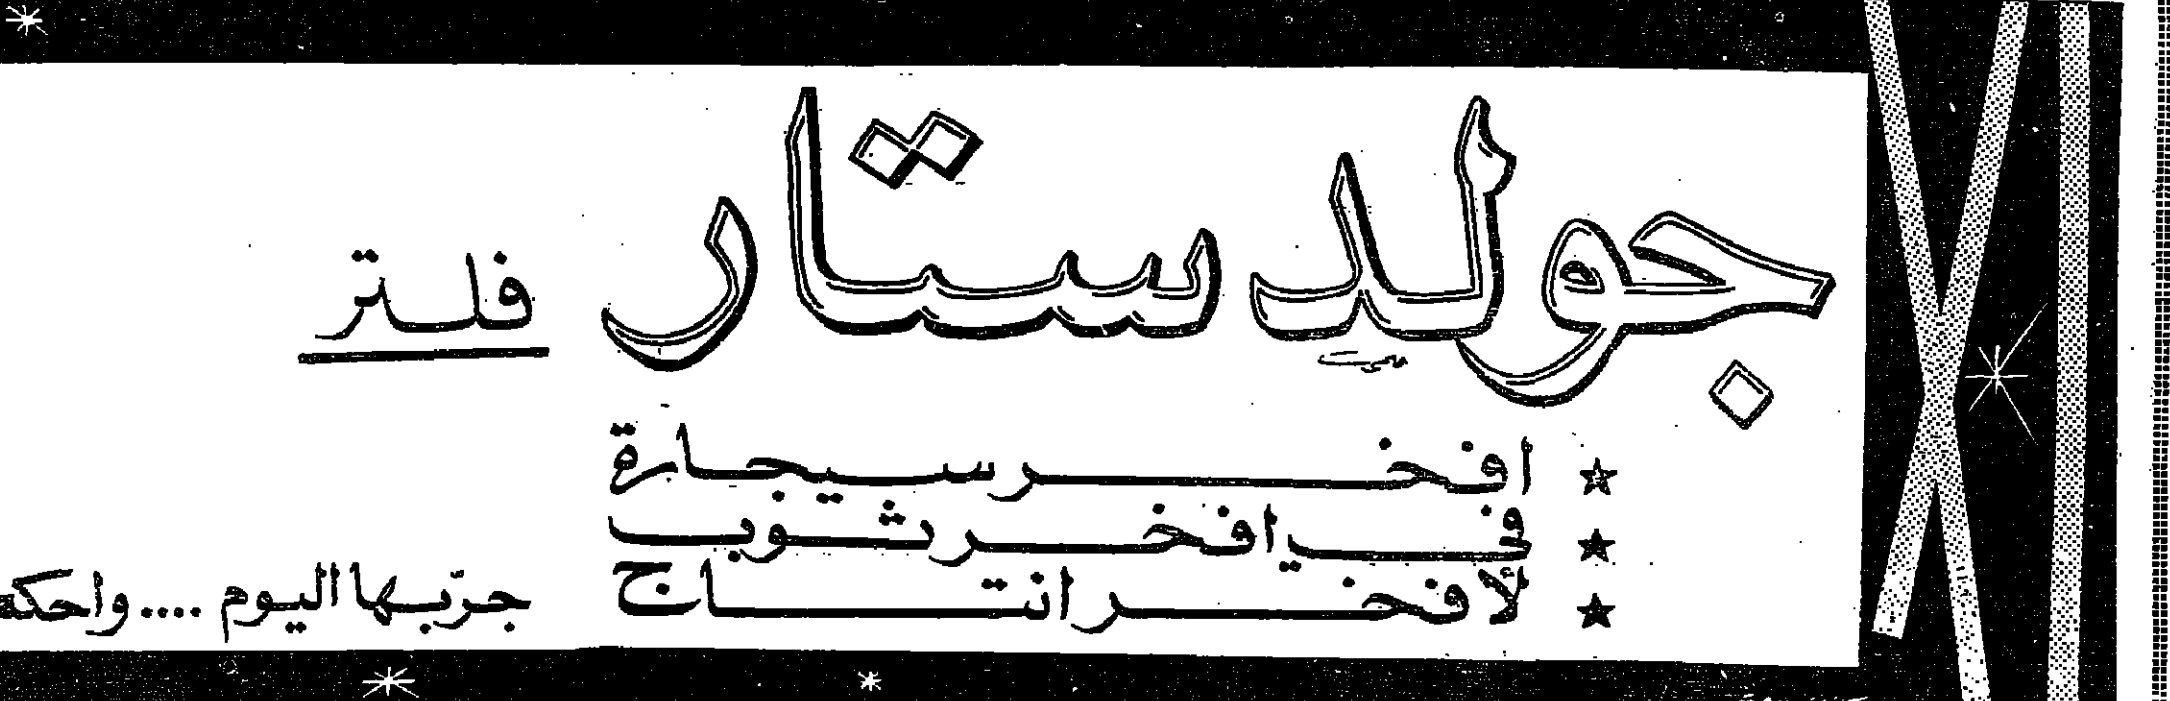 جولد ستار فلتر
افخر سيجارة
في افخر ثوب
لأفخر انتاج
جرّبها اليوم .... واحكم